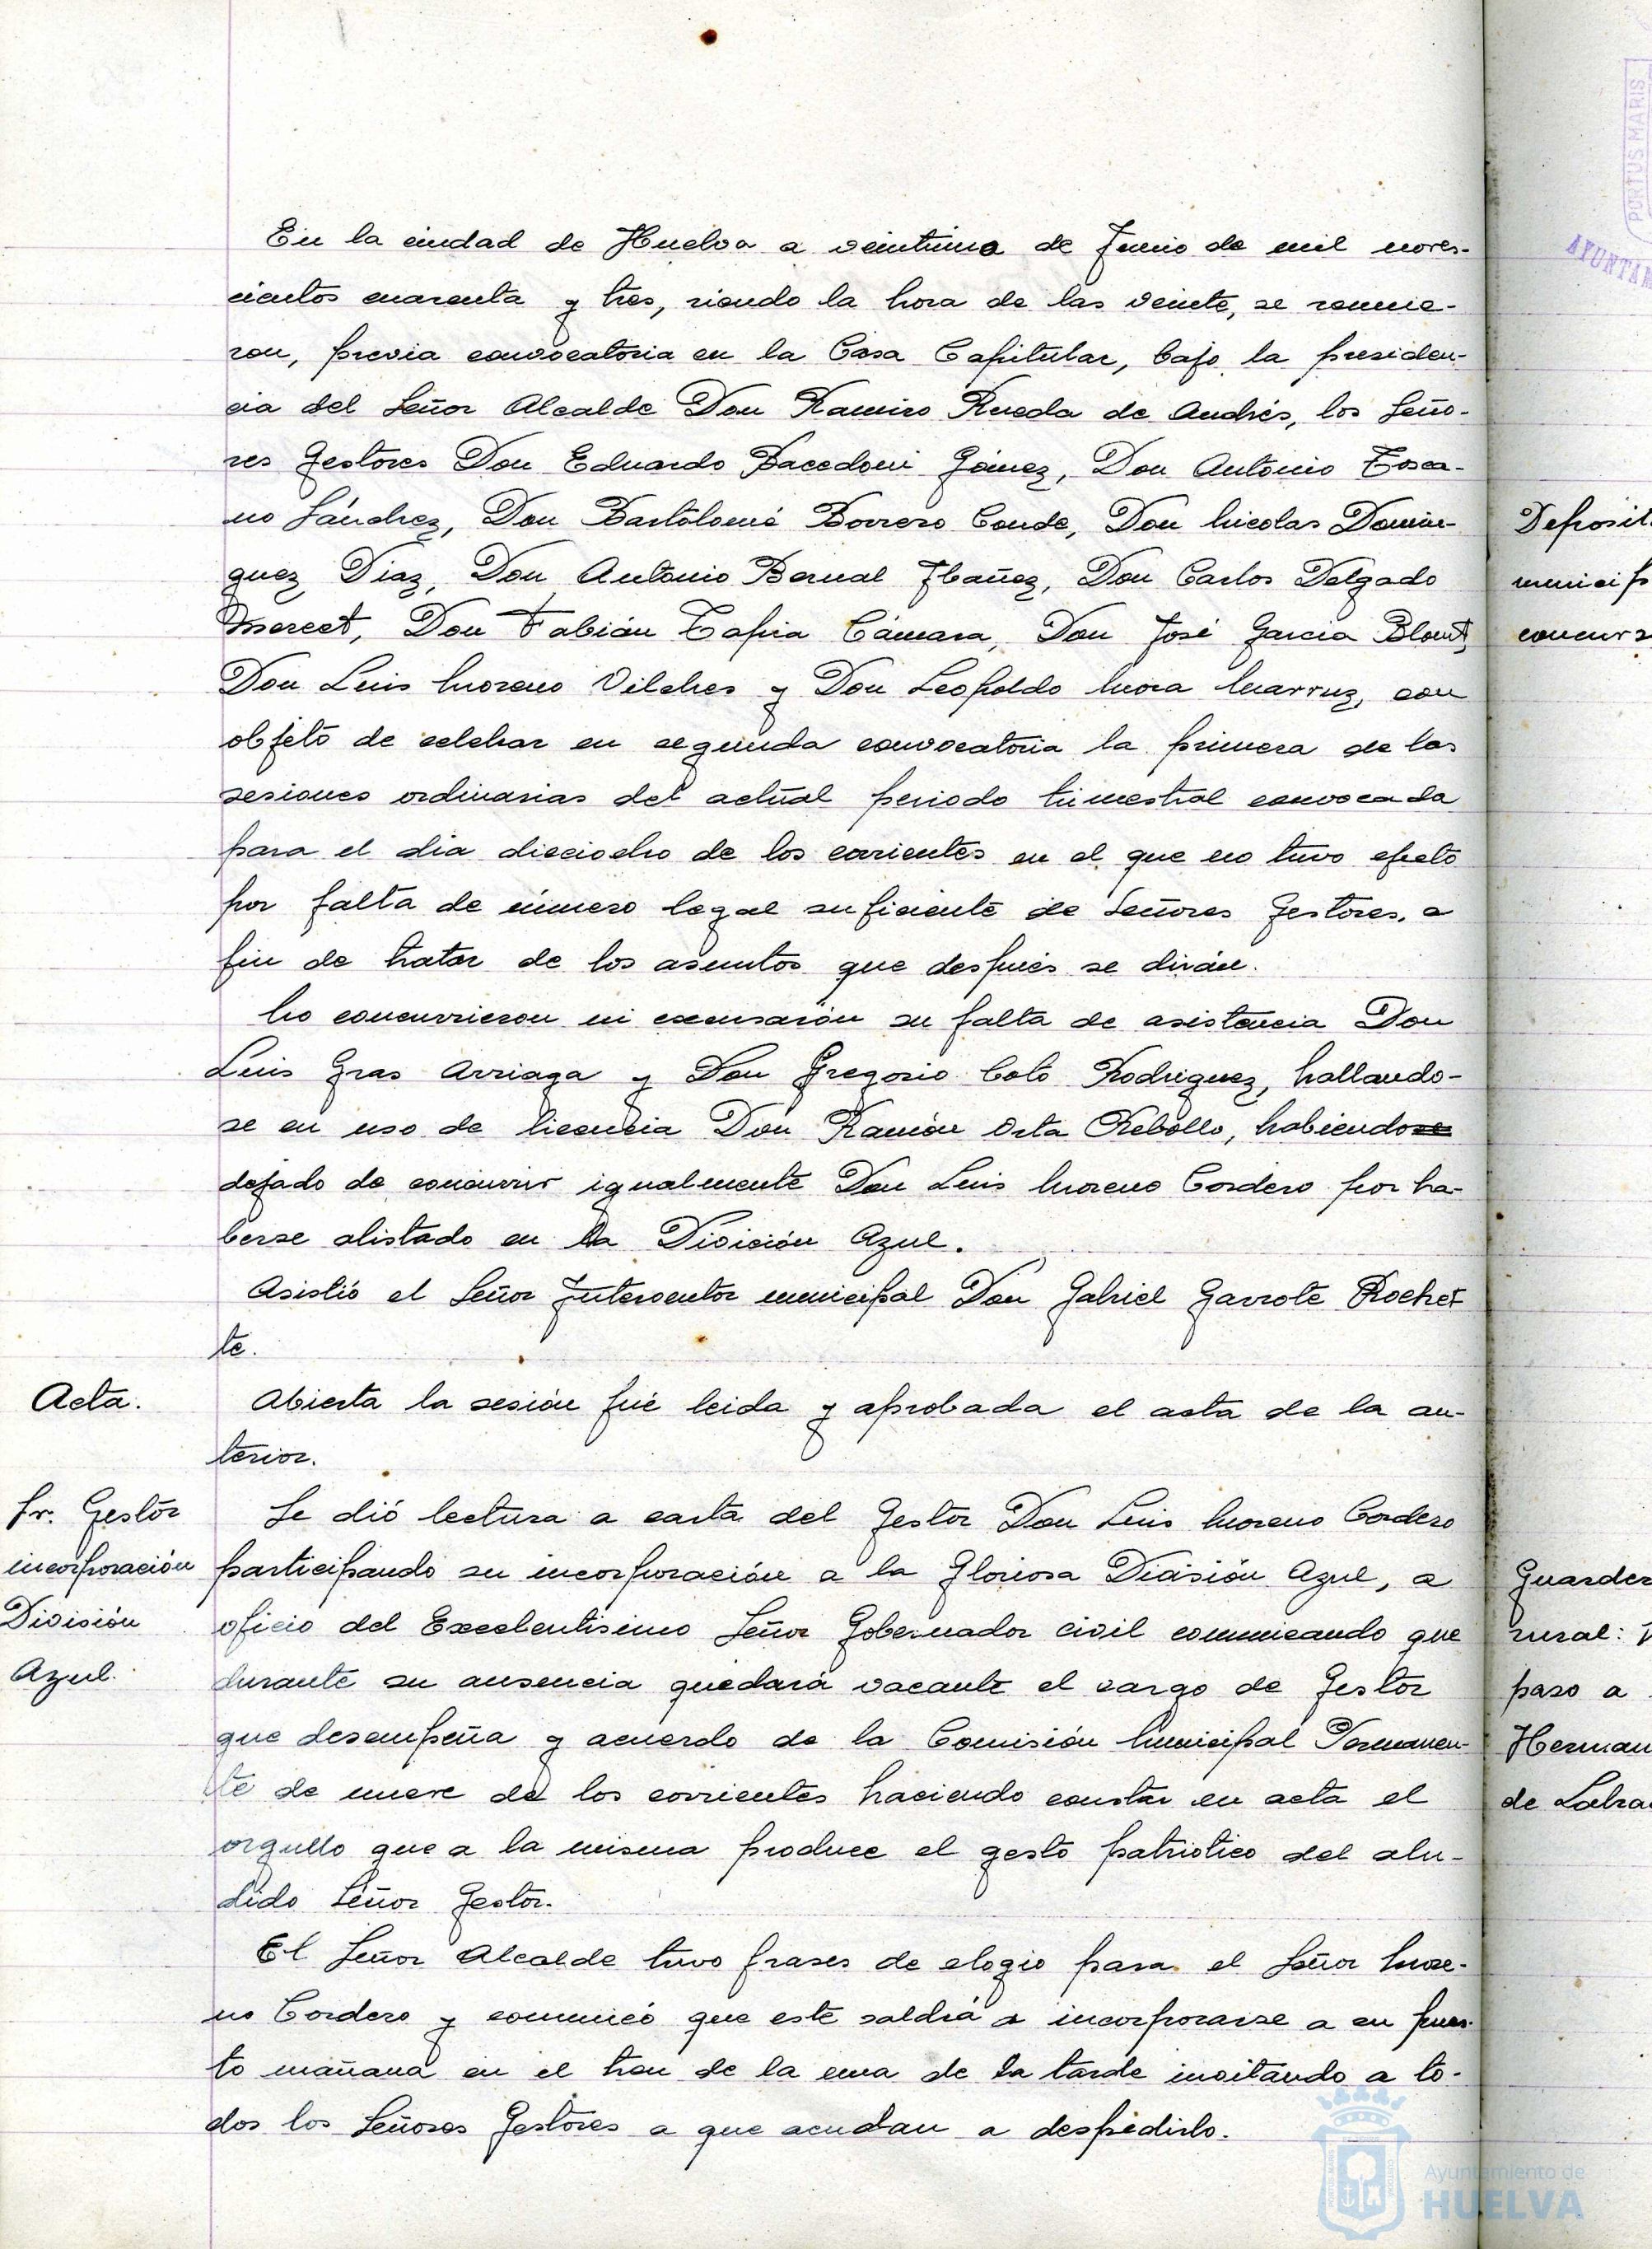 En la ciudad de Huelva a veintiuno de Junio de mil noves-
cientos cuarenta y tres, siendo la hora de las veinte, se reunie-
ron, previa convocatoria en la Casa Capitular, bajo la presiden-
cia del Señor Alcalde Don Ramiro Rueda de Andrés, los Seño-
res Gestores Don Eduardo Bacedoni Gómez, Don Antonio Tosca-
no Sánchez, Don Bartolomé Borrero Conde, Don Nicolas Domin-
guez Diaz, Don Antonio Bernal Ibañez, Don Carlos Delgado
Mercet, Don Fabián Tapia Cámara, Don José Garcia Blount,
Don Luis Moreno Vilches y Don Leopoldo Mora Marruz, con
objeto de celebrar en segunda convocatoria la primera de las
sesiones ordinarias del actual periodo trimestral convocada
para el dia dieciocho de los corrientes en el que no tuvo efecto
por falta de número legal suficiente de Señores Gestores, a
fin de tratar de los asuntos que después se dirán.
No concurrieron ni excusarón su falta de asistencia Don
Luis Gras Arriaga y Don Gregorio Coto Rodriguez, hallando-
se en uso de licencia Don Ramón Orta Rebollo, habiendose
dejado de concurrir igualmente Don Luis Moreno Cordero por ha-
berse alistado en la División Azul.
Asistió el Señor Interventor municipal Don Gabriel Garrote Rochet-
te.
Acta.
Abierta la sesión fué leida y aprobada el acta de la an-
terior.
Sr. Gestor
incorporación
División
Azul.
Se dió lectura a carta del Gestor Don Luis Moreno Cordero
participando su incorporación a la Gloriosa División Azul, a
oficio del Excelentisimo Señor Gobernador civil comunicando que
durante su ausencia quedará vacante el cargo de Gestor
que desempeña y acuerdo de la Comisión Municipal Permanen-
te de nueve de los corrientes haciendo constar en acta el
orgullo que a la misma produce el gesto patriotico del alu-
dido Señor Gestor.
El Señor Alcalde tuvo frases de elogio para el Señor More-
no Cordero y comunicó que este saldrá a incorporarse a su pues-
to mañana en el tren de la una de la tarde invitando a to-
dos los Señores Gestores a que acudan a despedirlo.
Deposit
municip
concurs
Guarder
rural:
paso a
Herman
de Labra
PORTUS MARIS
AYUNTAM
Ayuntamiento de
HUELVA